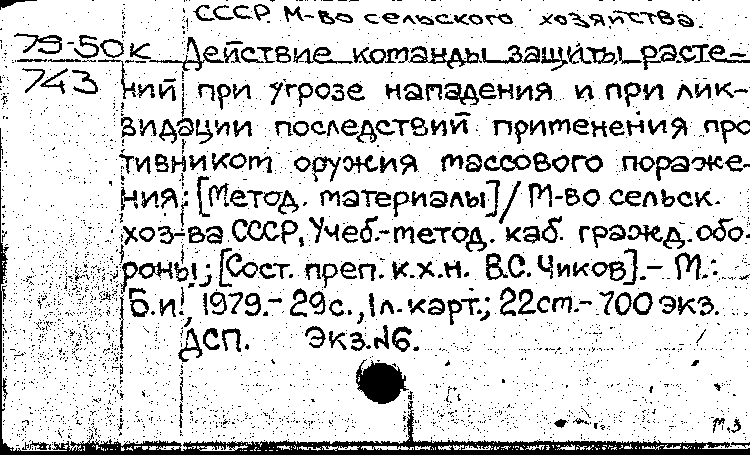 СССР. М-во сельского хозяйства.
79-50к Действие команды защиты расте-
743 ний при угрозе нападения и при лик-
видации последствий применения про
тивником оружия массового пораже-
ния: [Метод. материалы] / М-во сельск.
хоз-ва СССР, Учеб.-метод. каб. гражд. обо-
роны; [Сост. преп. к.х.н. В.С. Чиков]. - М.:
Б.и., 1979. - 29с., 1л. карт.; 22см. - 700 экз.
ДСП. Экз.№6.
М.З